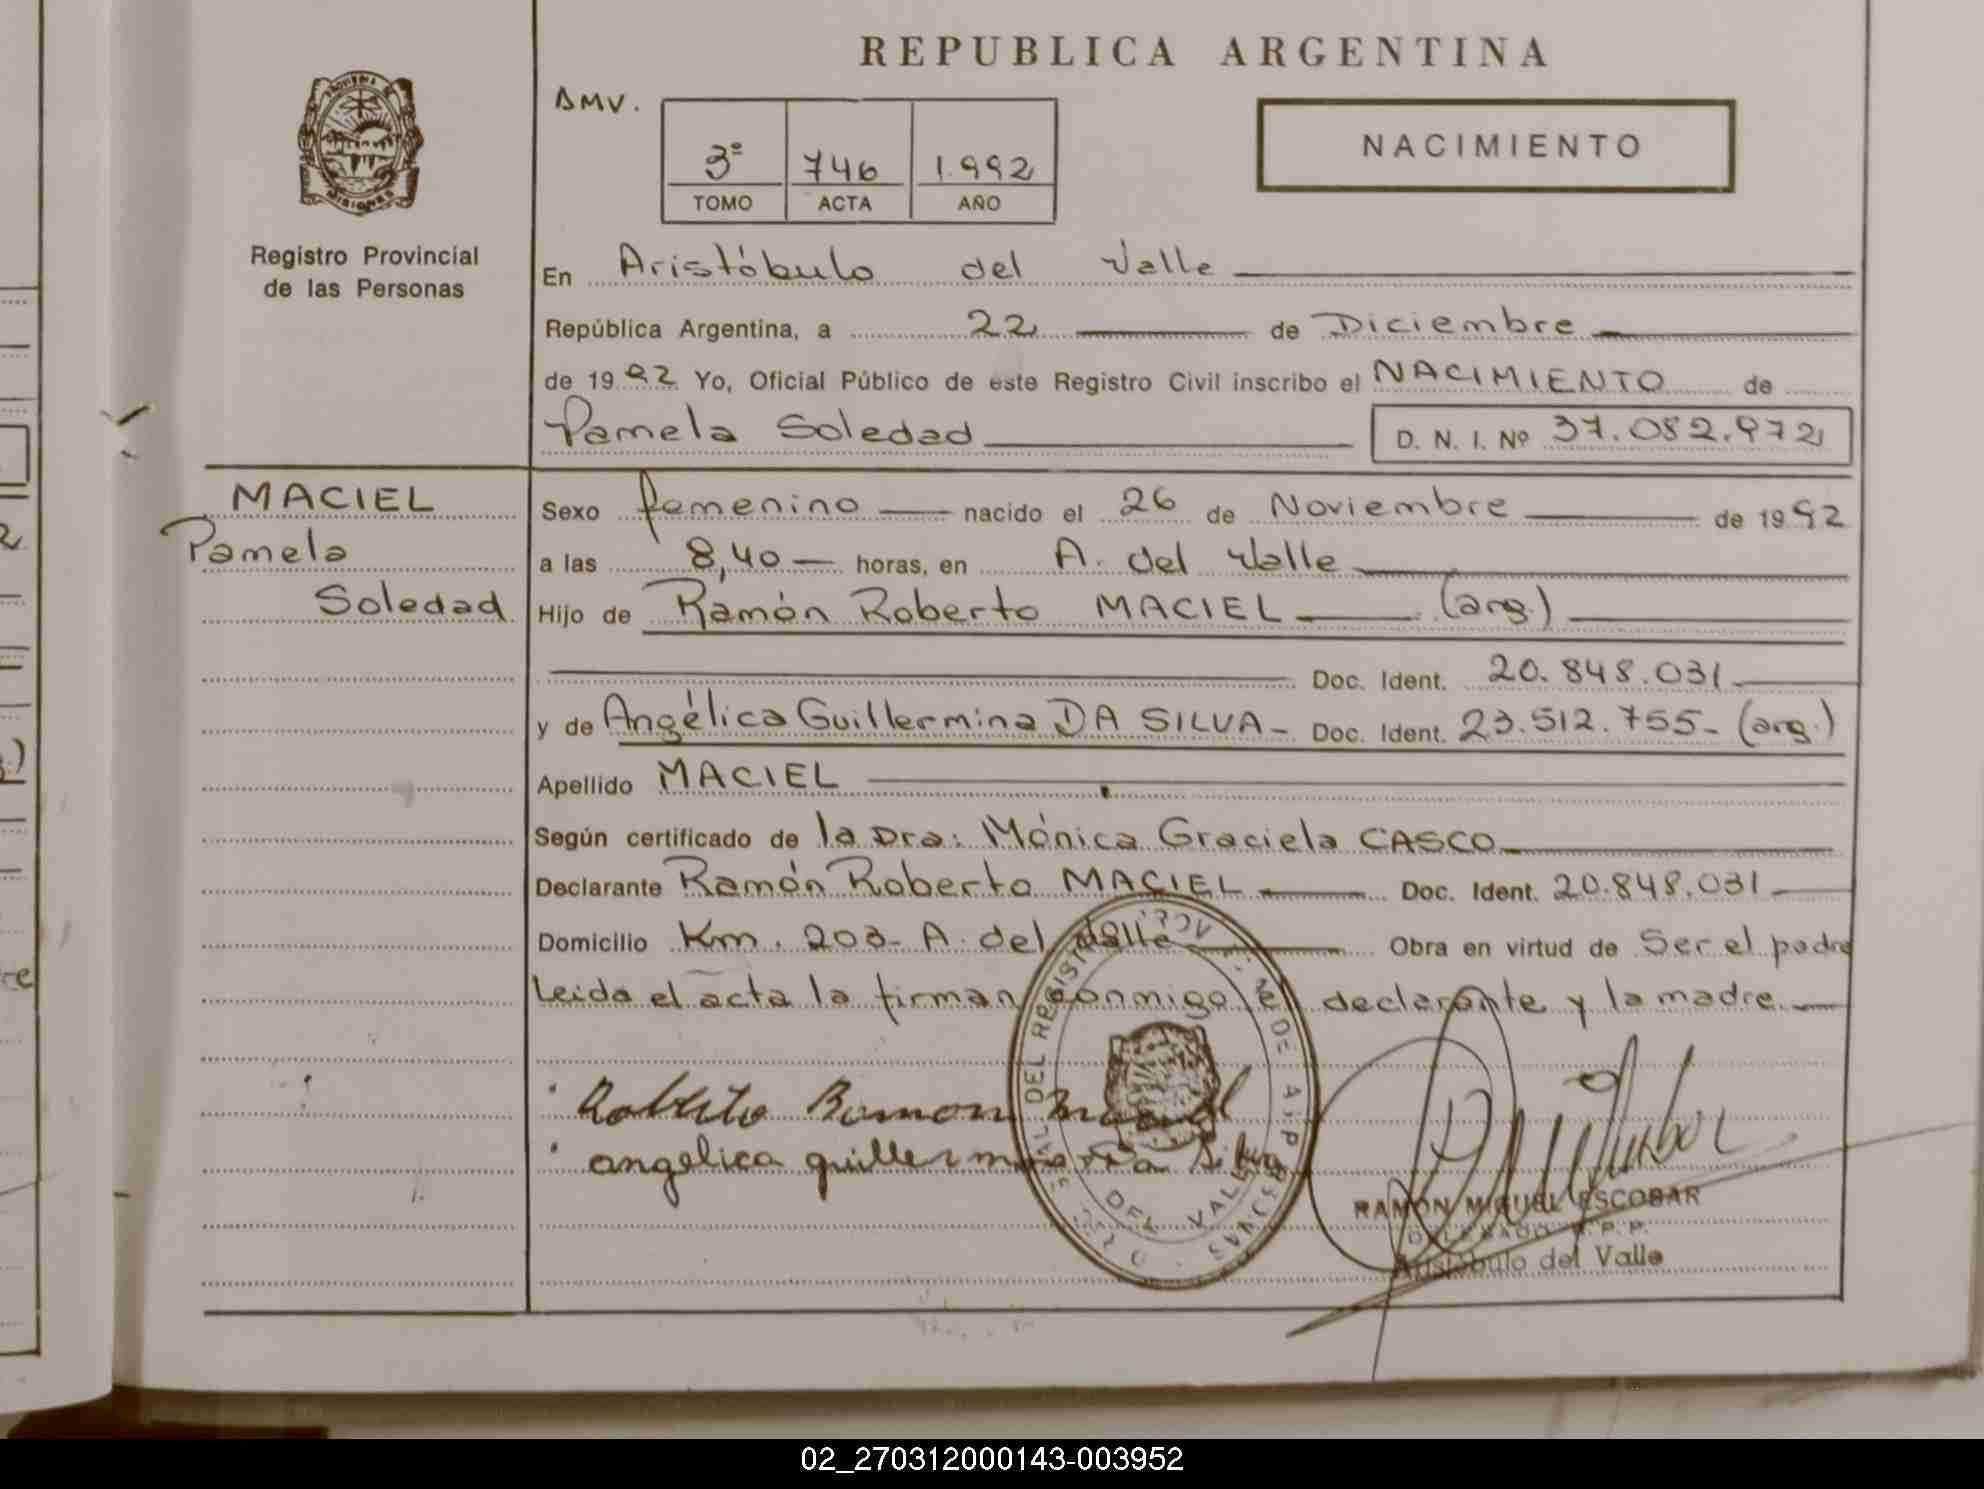 REPUBLICA ARGENTINA
PROVINCIA
MISIONES
Registro Provincial
de las Personas
AMV.
3º 746 1.992
TOMO ACTA AÑO
NACIMIENTO
En Aristóbulo del Valle
República Argentina, a 22 de Diciembre
de 1992 Yo, Oficial Público de este Registro Civil inscribo el NACIMIENTO de
Pamela Soledad D. N. I. Nº 37.082.972
MACIEL
Pamela
Soledad
Sexo femenino nacido el 26 de Noviembre de 1992
a las 8,40 horas, en A. del Valle
Hijo de Ramón Roberto MACIEL (arg.)
Doc. Ident. 20.848.031
y de Angélica Guillermina DA SILVA- Doc. Ident. 23.512.755- (arg.)
Apellido MACIEL
Según certificado de la Dra: Mónica Graciela CASCO
Declarante Ramón Roberto MACIEL Doc. Ident. 20.848.031
Domicilio Km. 203- A. del Valle Obra en virtud de Ser el padre
Leida el acta la firman conmigo el declarante y la madre.
Roberto Ramon Maciel
angelica guillermina Da Silva
DEL REGISTR
DEL VALLE
RAMON MIGUEL ESCOBAR
DELEGADO R.P.P.
Aristóbulo del Valle
02_270312000143-003952